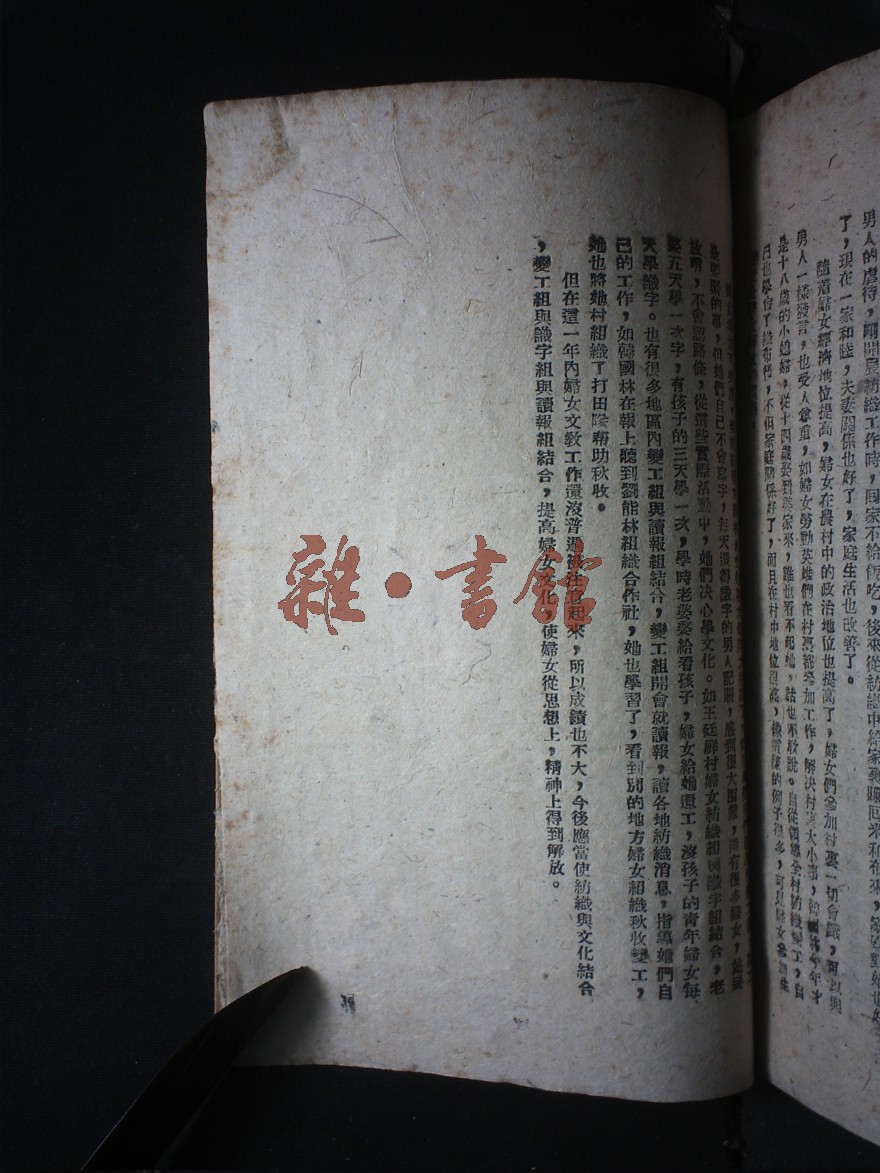 男人的虐待,剛開展紡織工作時,回家不給飯吃,後來從紡織中給家
了,現在一家和睦,夫妻關係也好了,家庭生活也改善了。
隨着婦女經濟地位提高,婦女在農村中的政治地位也提高了,婦女們參加村裏一切會議,可以與
男人一樣發言,也受人尊重,如婦女勞動英雄們在村參加工作,解決村裏大小事,今年才
是十八歲的小媳婦,從十四歲娶到家來,誰也看不起她,話也不敢說。自從領導全村紡織變工,自
己也學會了織布,不但家庭關係好了,而且在村中地位很高,的例子很多,可是婦女參加生
的事,但她們自己不會寫字,每天還得識字的男人記賬,感到很大困難,還有很多婦女,站崗
放哨,不會認路條,從這些實際活動中,她們決心學文化。如王廷祥村婦女紡織組與識字組結合,老
婆五天學一次字,有孩子的三天學一次,學時老婆婆給看孩子,婦女給她還工,沒孩子的青年婦女每
天學識字。也有很多地區內變工組與讀報組結合,變工組開會就讀報,讀各地紡織消息,指導她們自
己的工作,如韓國林在報上聽到劉能林組織合作社,她也學習了,看到別的地方婦女組織秋收變工,
她也將她村組織了打田隊帮助秋收。
但在這一年內婦女文教工作還沒普遍被注意起來,所以成績也不大,今後應當使紡織與文化結合
,變工組與識字組與讀報組結合,提高婦女文化,使婦女從思想上,精神上得到解放。
雜·書館